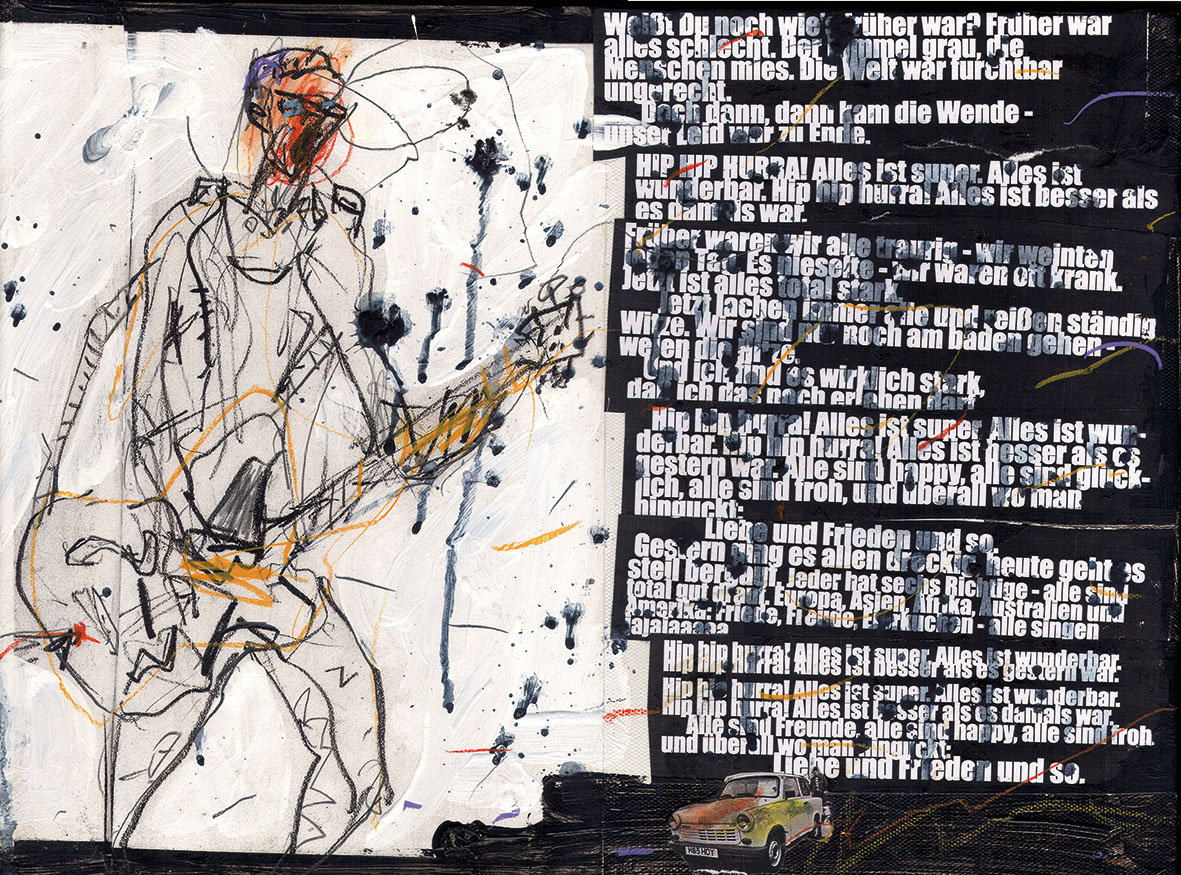 Weißt Du noch wie's früher war? Früher war
alles schlecht. Der Himmel grau, die
Menschen mies. Die Welt war furchtbar
ungerecht.
Doch dann, dann kam die Wende -
unser Leid war zu Ende.
HIP HIP HURRA! Alles ist super. Alles ist
wunderbar. Hip hip hurra! Alles ist besser als
es damals war.
Früher waren wir alle traurig - wir weinten
jeden Tag. Es nieselte - wir waren oft krank.
Jetzt ist alles total stark.
Jetzt lachen immer alle und reißen ständig
Witze. Wir sind nur noch am baden gehen -
wegen die Hitze.
Und ich, find es wirklich stark,
daß ich das noch erleben darf
Hip hip hurra! Alles ist super. Alles ist wun-
derbar. Hip hip hurra! Alles ist besser als es
gestern war. Alle sind happy, alle sind glück-
lich, alle sind froh, und überall wo man
hinguckt:
Liebe und Frieden und so.
Gestern ging es allen dreckig, heute geht es
steil bergauf. Jeder hat sechs Richtige - alle sind
total gut drauf. Europa, Asien, Afrika, Australien und
Amerika: Friede, Freude, Eierkuchen - alle singen
lalalaaaa
Hip hip hurra! Alles ist super. Alles ist wunderbar.
Hip hip hurra! Alles ist besser als es gestern war.
Hip hip hurra! Alles ist super. Alles ist wunderbar.
Hip hip hurra! Alles ist besser als es damals war.
Alle sind Freunde, alle sind happy, alle sind froh
und überall wo man hinguckt:
Liebe und Frieden und so.